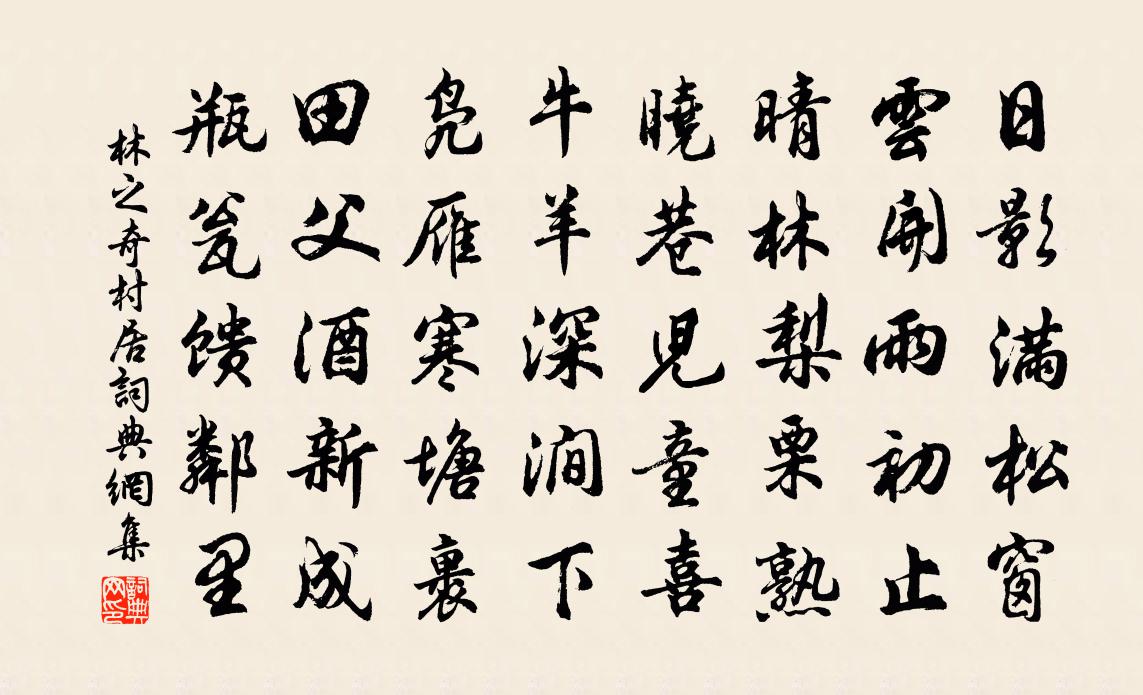 日影滿松窗
雲開雨初止
晴林梨栗熟
曉巷兒童喜
牛羊深澗下
鳧雁寒塘裏
田父酒新成
瓶瓮馈鄰里
林之奇村居詞典網集
詞典网印